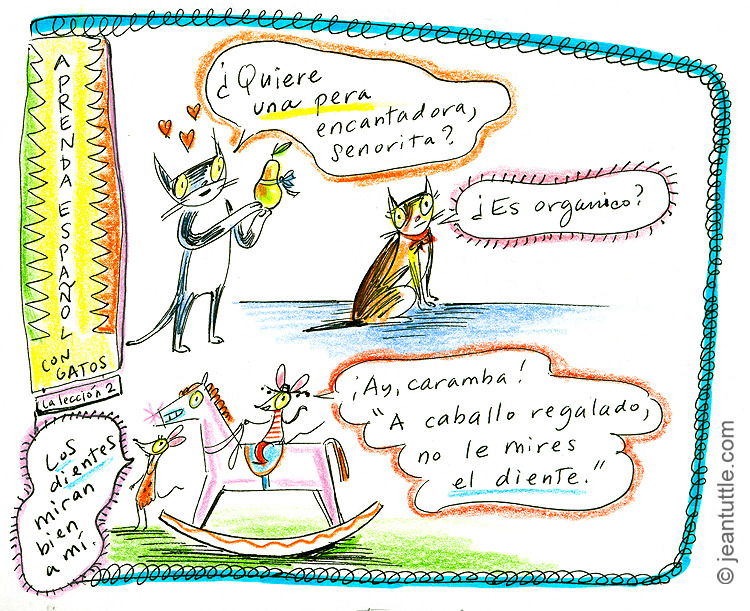 APRENDA ESPAÑOL
CON
GATOS
La lección 2
¿Quiere
una pera
encantadora,
señorita?
¿Es organico?
¡Ay, caramba!
"A caballo regalado,
no le mires
el diente."
Los
dientes
miran
bien
a mí.
© jeantuttle.com